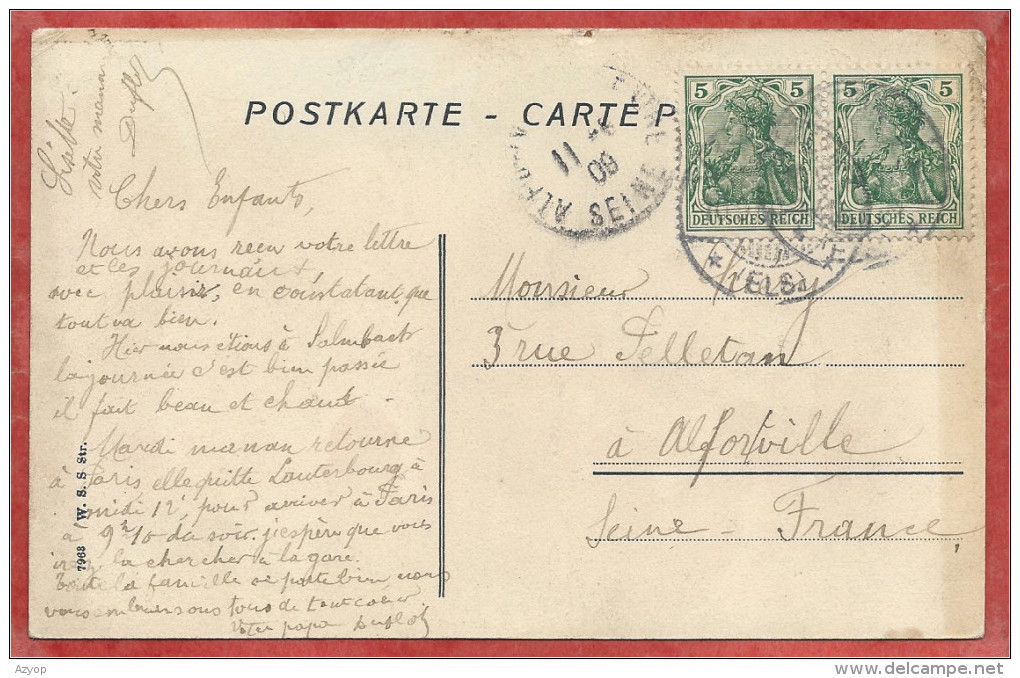 POSTKARTE - CARTE P
5 5
5 5
DEUTSCHES REICH
DEUTSCHES REICH
ALFORTVILLE
11
09
SEINE
(ELS)
votre maman
Chers Enfants,
Nous avons recu votre lettre
et les journaux,
avec plaisir, en constatant que
tout va bien.
Hier nous étions à Salmbach
la journée c'est bien passée
il fait beau et chaud.
Mardi maman retourne
à Paris elle quitte Lauterbourg à
à midi 12', pour arriver à Paris
9h 10 du soir. j'espère que vous
irez la chercher à la gare.
Toute la famille se porte bien, nous
vous embrassons tous de tout coeur
Votre papa
Monsieur
3 rue Pelletan
à Alfortville
Seine - France
7968 W. S. S Str.
Azyop
www.delcampe.net